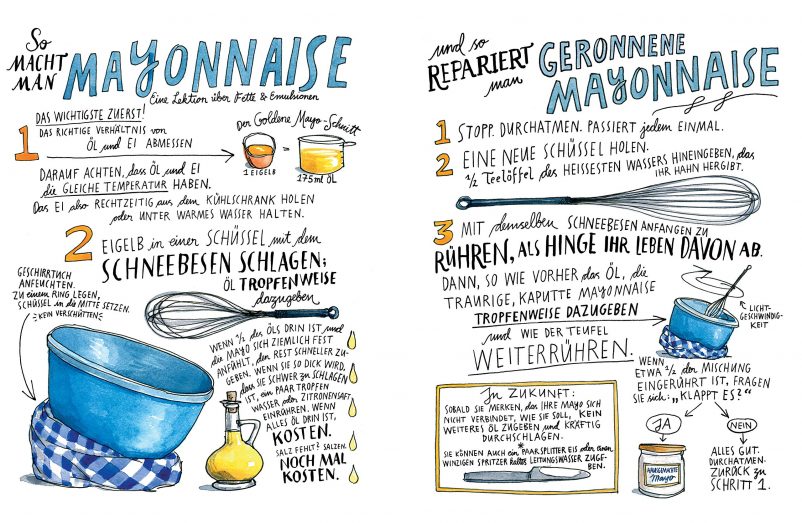 So
MACHT
MAN
MAYONNAISE
Eine Lektion über Fette & Emulsionen
DAS WICHTIGSTE ZUERST!
1
DAS RICHTIGE VERHÄLTNIS von
ÖL und EI ABMESSEN
Der Goldene Mayo-Schnitt
1 EIGELB
=
175 ml ÖL
DARAUF ACHTEN, dass ÖL und EI
die GLEICHE TEMPERATUR HABEN.
Das EI also RECHTZEITIG aus dem KÜHLSCHRANK HOLEN
oder UNTER WARMES WASSER HALTEN.
2 EIGELB in einer SCHÜSSEL mit dem
SCHNEEBESEN SCHLAGEN;
ÖL TROPFENWEISE
dazugeben
GESCHIRRTUCH
ANFEUCHTEN.
ZU einem RING LEGEN,
SCHÜSSEL in die MITTE SETZEN.
KEIN VERSCHÜTTEN
WENN 1/2 des ÖLS DRIN IST und
die MAYO SICH ZIEMLICH FEST
ANFÜHLT, den REST SCHNELLER ZU-
GEBEN. WENN SIE SO DICK WIRD,
dass SIE SCHWER zu SCHLAGEN
IST, ein PAAR TROPFEN
WASSER oder ZITRONENSAFT
EINRÜHREN. WENN
ALLES ÖL DRIN IST,
KOSTEN.
SALZ FEHLT? SALZEN.
NOCH MAL
KOSTEN.
und so
REPARIERT
man
GERONNENE
MAYONNAISE
1 STOPP. DURCHATMEN. PASSIERT jedem EINMAL.
2 EINE NEUE SCHÜSSEL HOLEN.
1/2 Teelöffel des HEISSESTEN WASSERS HINEINGEBEN, das
IHR HAHN HERGIBT.
3 MIT demselben SCHNEEBESEN ANFANGEN zu
RÜHREN, ALS HINGE IHR LEBEN DAVON AB.
DANN, SO WIE VORHER das ÖL, die
TRAURIGE, KAPUTTE MAYONNAISE
TROPFENWEISE DAZUGEBEN
und WIE DER TEUFEL
WEITERRÜHREN.
LICHT-
GESCHWINDIG-
KEIT
WENN
ETWA 1/2 der MISCHUNG
EINGERÜHRT IST, FRAGEN
SIE sich: "KLAPPT ES?"
JA
NEIN
HAUSGEMACHTE
Mayo
ALLES GUT.
DURCHATMEN.
ZURÜCK zu
SCHRITT 1.
In ZUKUNFT:
SOBALD SIE MERKEN, dass IHRE MAYO SICH
NICHT VERBINDET, WIE SIE SOLL, KEIN
WEITERES ÖL ZUGEBEN und KRÄFTIG
DURCHSCHLAGEN.
SIE KÖNNEN AUCH ein PAAR SPLITTER EIS oder einen
WINZIGEN SPRITZER kaltes LEITUNGSWASSER ZUGE-
BEN.